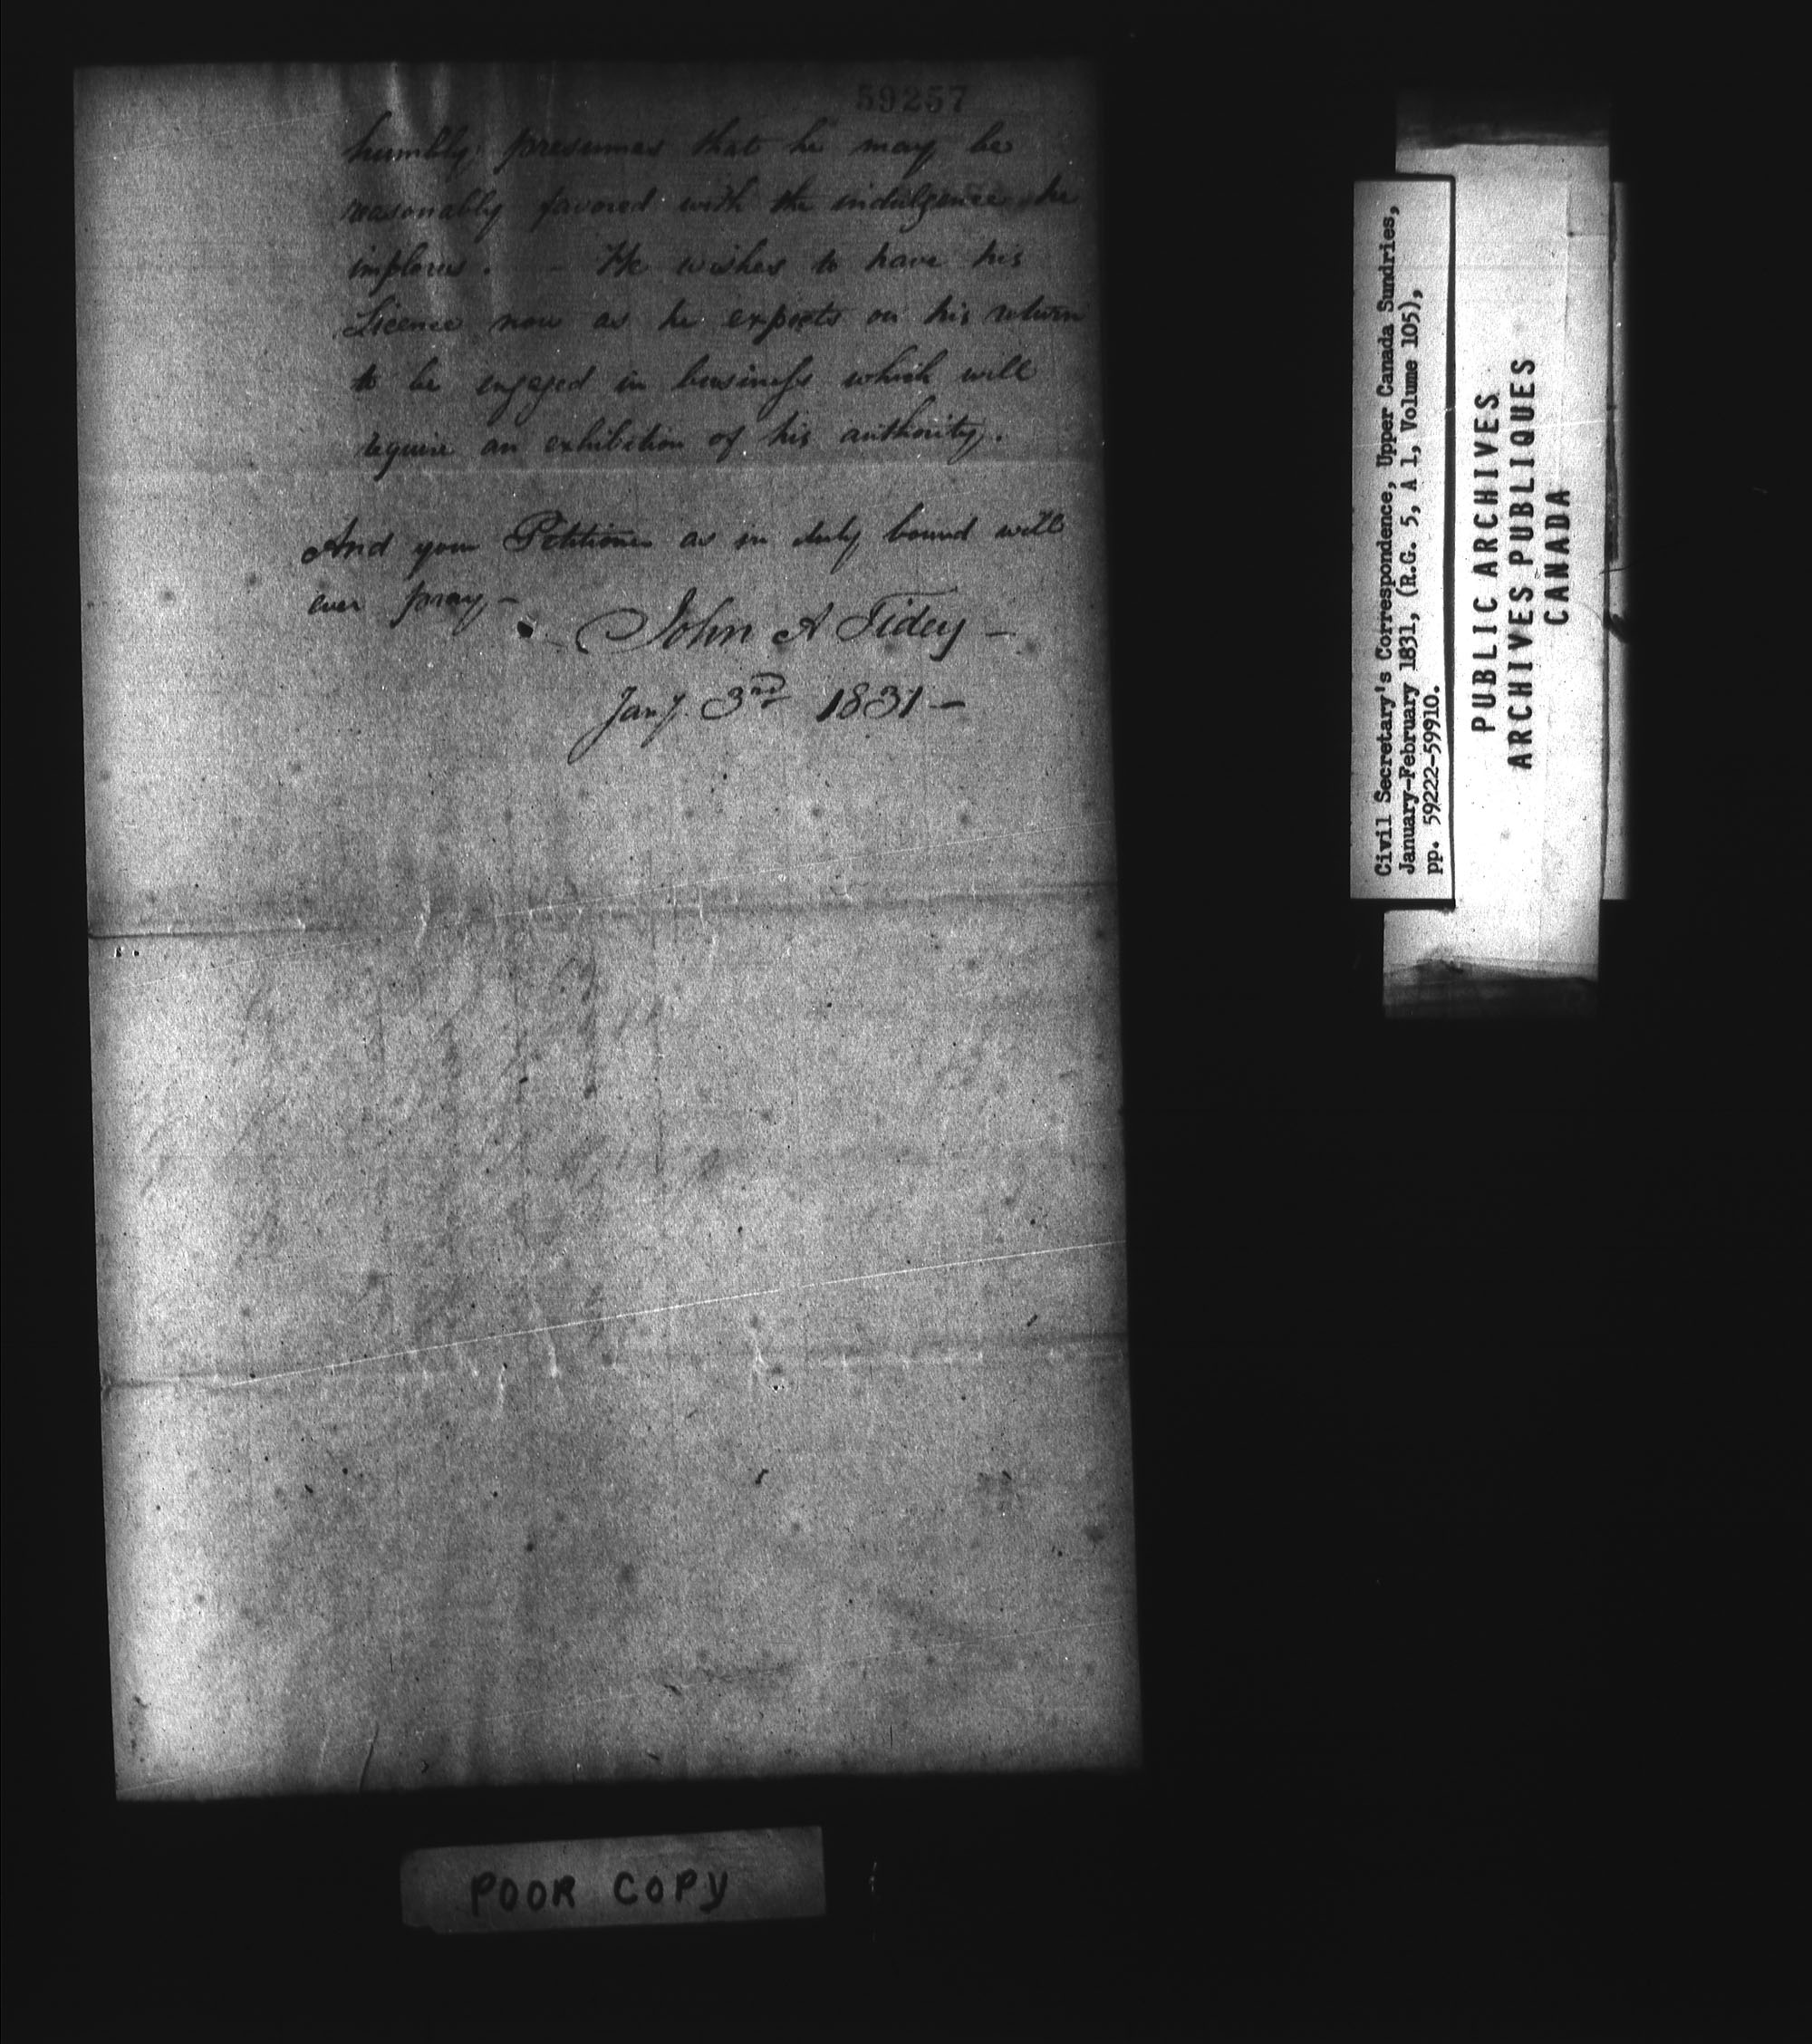 59257
humbly presumes that he may be
reasonably favored with the indulgence he
implores. - He wishes to have his
Licence now as he expects on his return
to be engaged in business which will
require an exhibition of his authority.
And your Petitioner as in duty bound will
ever pray -
John A Tidey -
Jany. 3rd 1831 -
POOR COPY
Civil Secretary's Correspondence, Upper Canada Sundries,
January-February 1831, (R.G. 5, A 1, Volume 105),
pp. 59222-59910.
PUBLIC ARCHIVES
ARCHIVES PUBLIQUES
CANADA